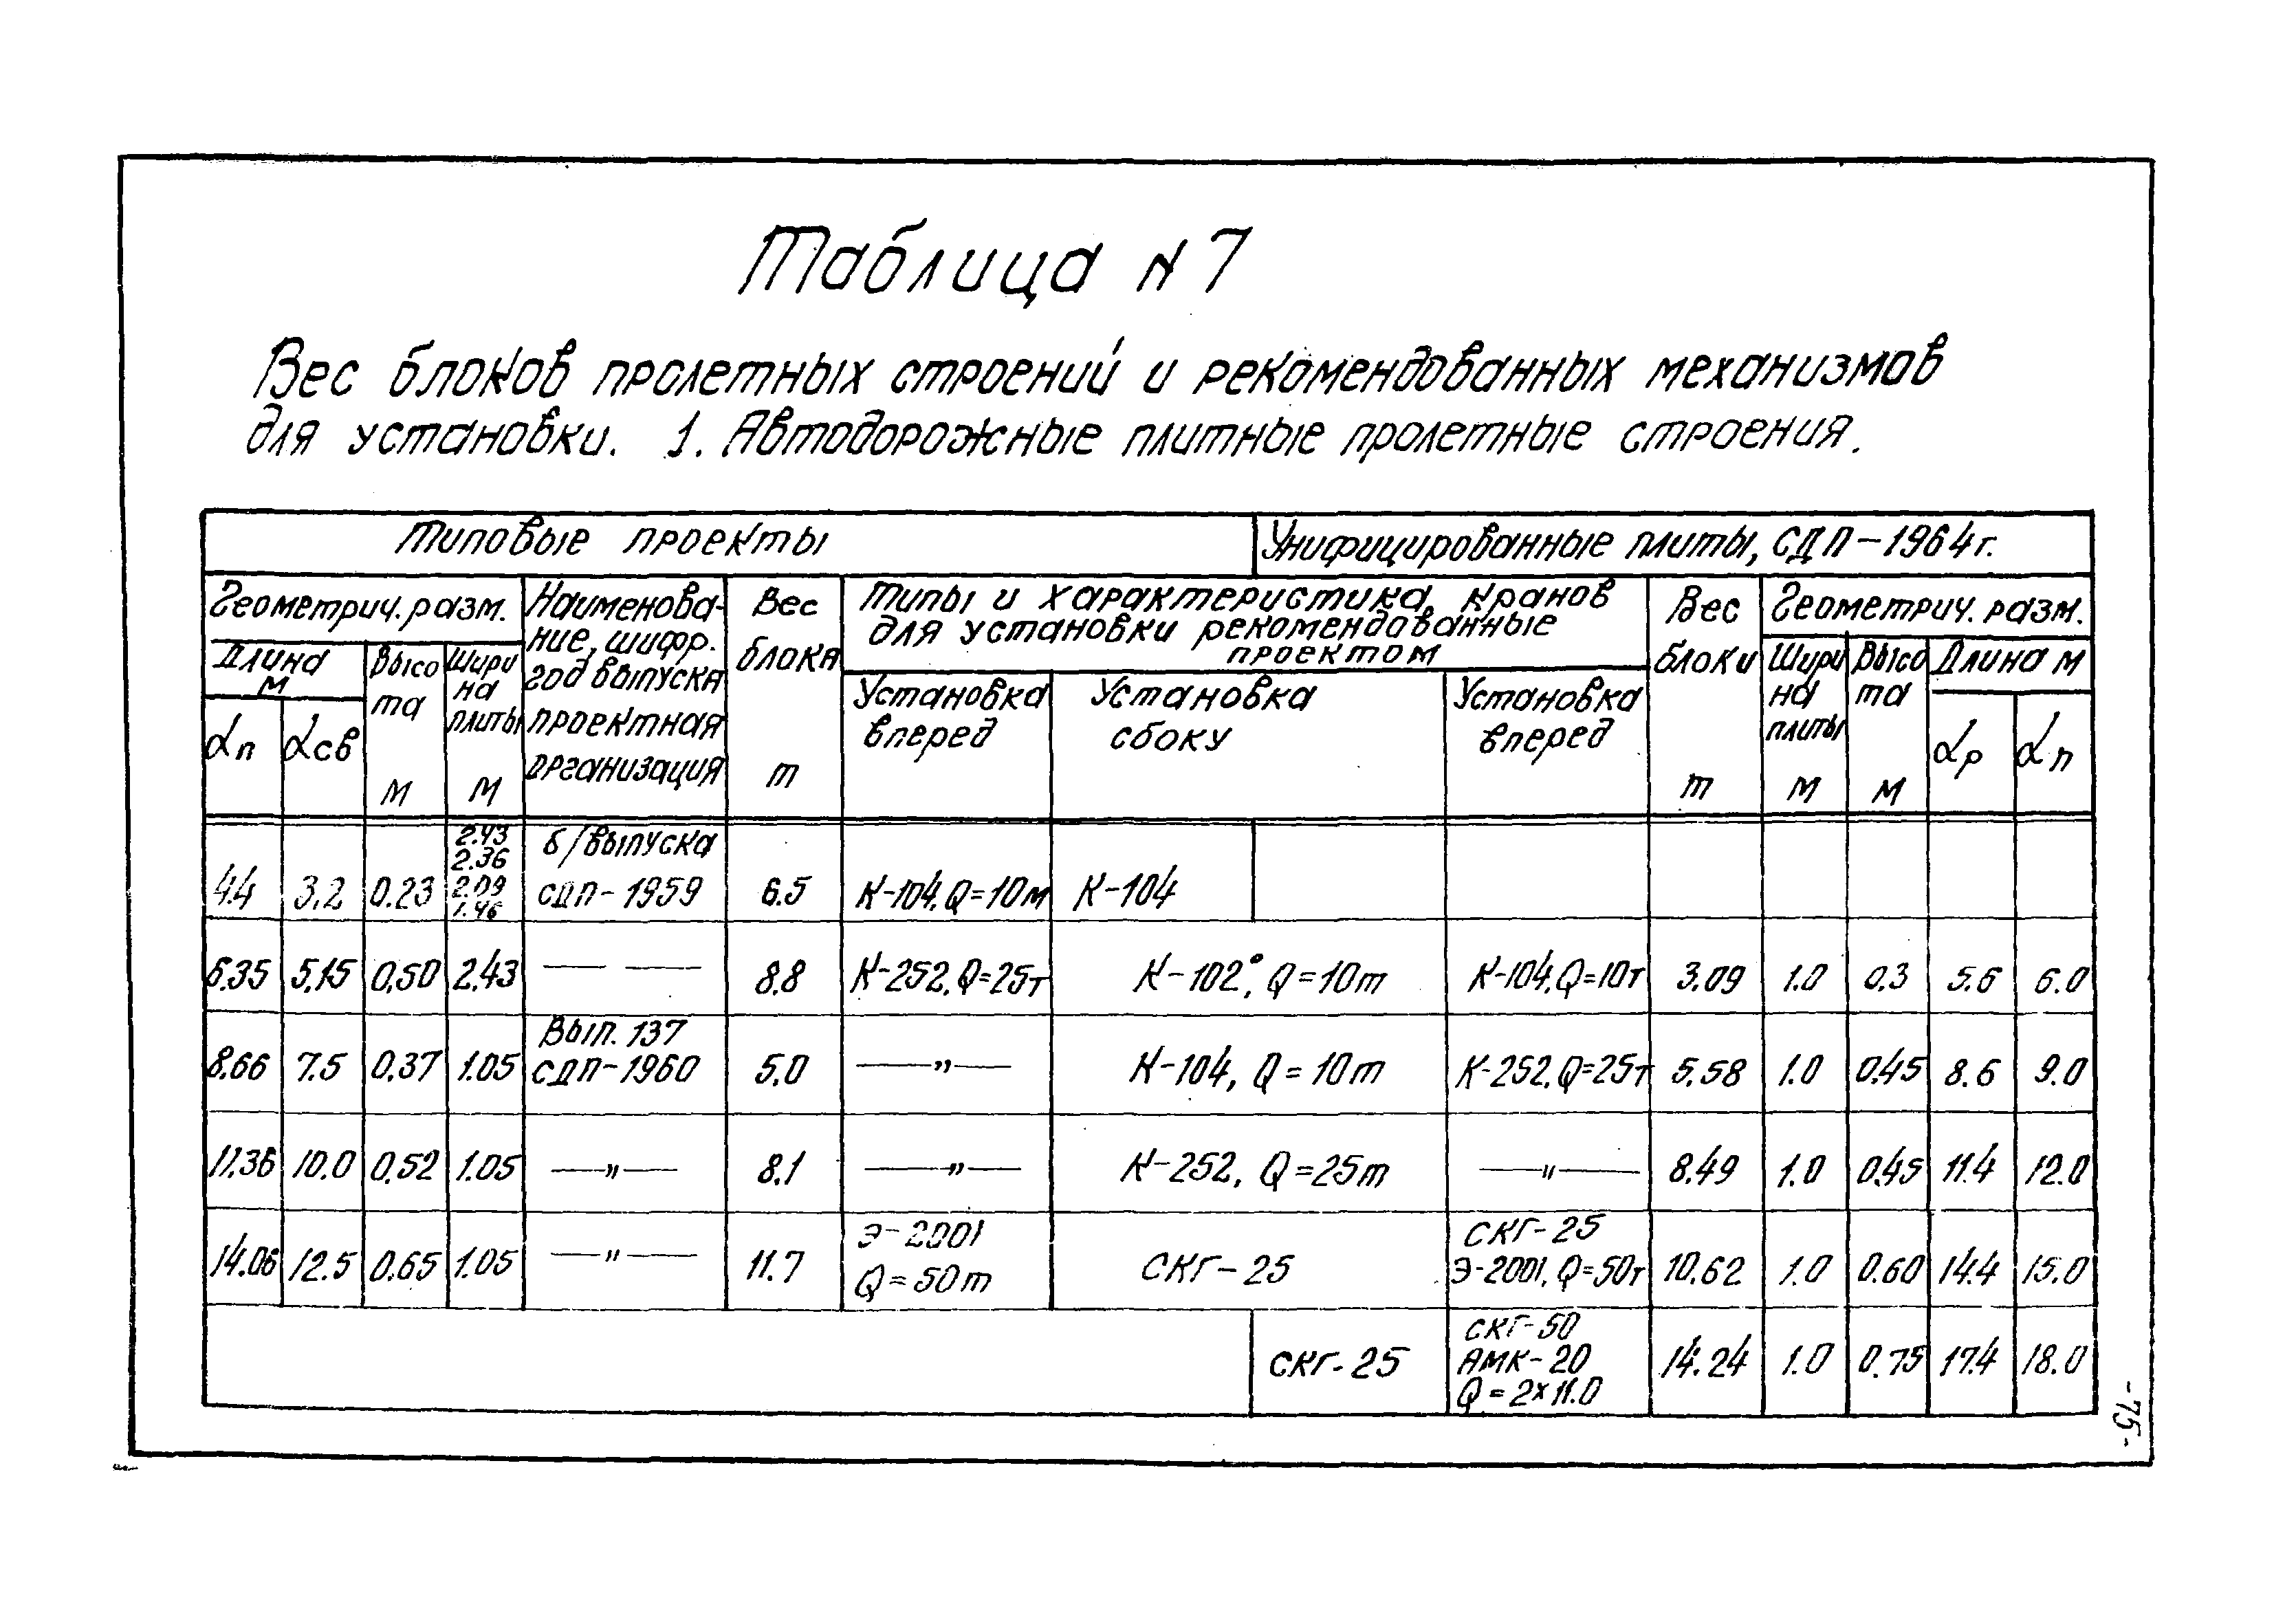 Таблица N7
Вес блоков пролетных строений и рекомендованных механизмов
для установки. 1. Автодорожные плитные пролетные строения.
Типовые проекты Унифицированные плиты, СДП-1964г.
Геометрич. разм. Наименова-ние, шифр. год выпуска проектная организация Вес блока т Типы и характеристика кранов для установки рекомендованные проектом Вес блоки т Геометрич. разм.
Длина м Высота м Ширина плиты м Установка вперед Установка сбоку Установка вперед Ширина плиты м Высота м Длина м
αп αсв αр αп
4.4 3.2 0.23 2.43 2.36 2.09 1.46 б/выпуска СДП-1959 6.5 К-104, Q=10м К-104
6.35 5.15 0.50 2.43 — — 8.8 К-252, Q=25т К-102, Q=10т К-104, Q=10т 3.09 1.0 0.3 5.6 6.0
8.66 7.5 0.37 1.05 Вып. 137 СДП-1960 5.0 —„— К-104, Q=10т К-252, Q=25т 5.58 1.0 0.45 8.6 9.0
11.36 10.0 0.52 1.05 —„— 8.1 —„— К-252, Q=25т —„— 8.49 1.0 0.45 11.4 12.0
14.06 12.5 0.65 1.05 —„— 11.7 Э-2001 Q=50т СКГ-25 СКГ-25 Э-2001, Q=50т 10.62 1.0 0.60 14.4 15.0
СКГ-25 СКГ-50 АМК-20 Q=2×11.0 14.24 1.0 0.75 17.4 18.0
-75-